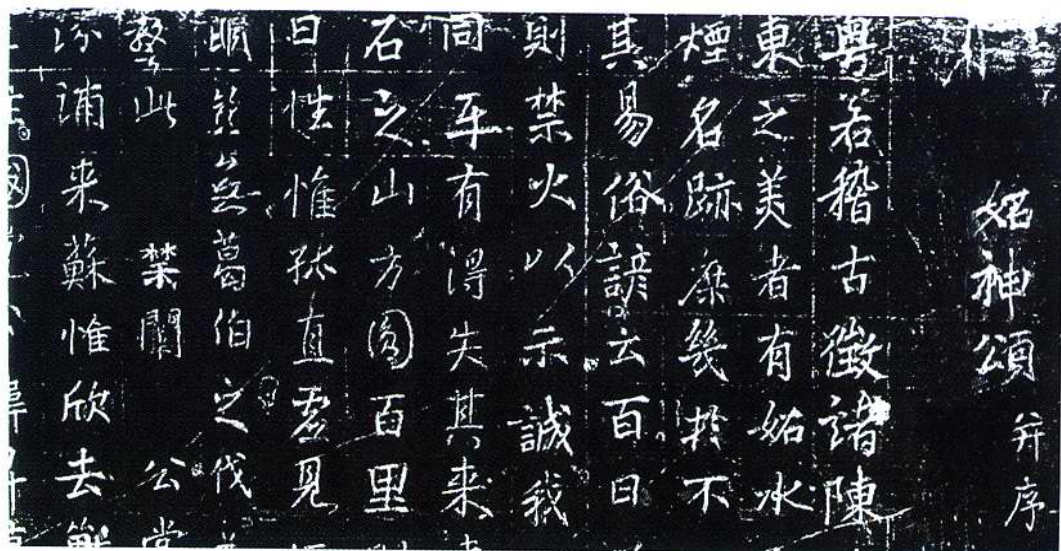 妬神頌 并序
粤若稽古徵諸陳
東之美者有妬水
煙名跡庶幾於不
其易俗諺云百日
則禁火以示誠我
同年有得失其来
石之山方圓百里
日性惟孤直虚見
無葛伯之伐
整此 禁闈 公堂
汾浦来蘇惟欣去
國